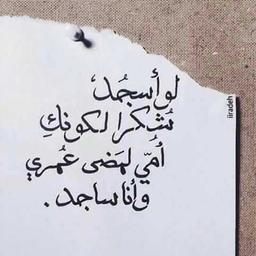 لو أسجُد،
شُكرا لكونكِ
أُمّي لمَضى عُمري
وأنا ساجد.
iiradeh